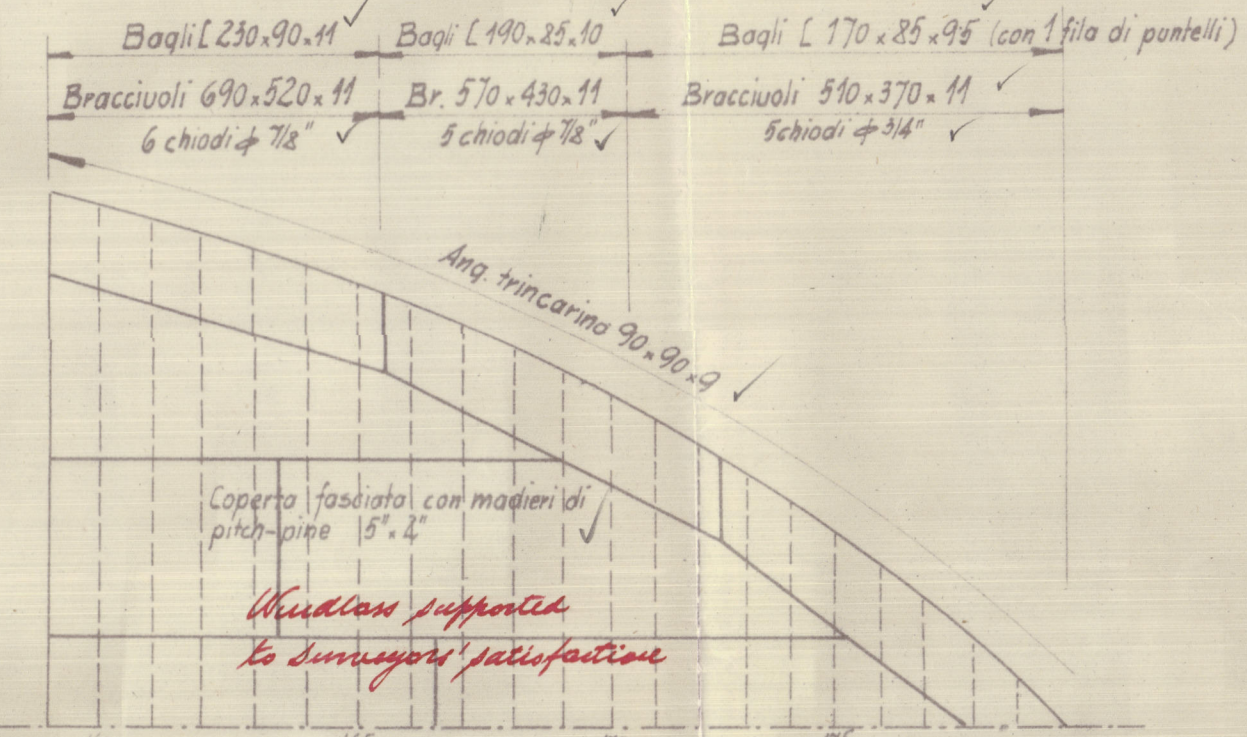 Bagli [ 230×90×11
Bagli [ 190×85×10
Bagli [ 170×85×9.5 (con 1 fila di puntelli)
Bracciuoli 690×520×11
Br. 570×430×11
Bracciuoli 510×370×11
6 chiodi ϕ 7/8"
5 chiodi ϕ 7/8"
5 chiodi ϕ 3/4"
Ang. trincarino 90×90×9
Coperta fasciata con madieri di
pitch-pine 5"×2"
Windlass supported
to surveyors' satisfaction